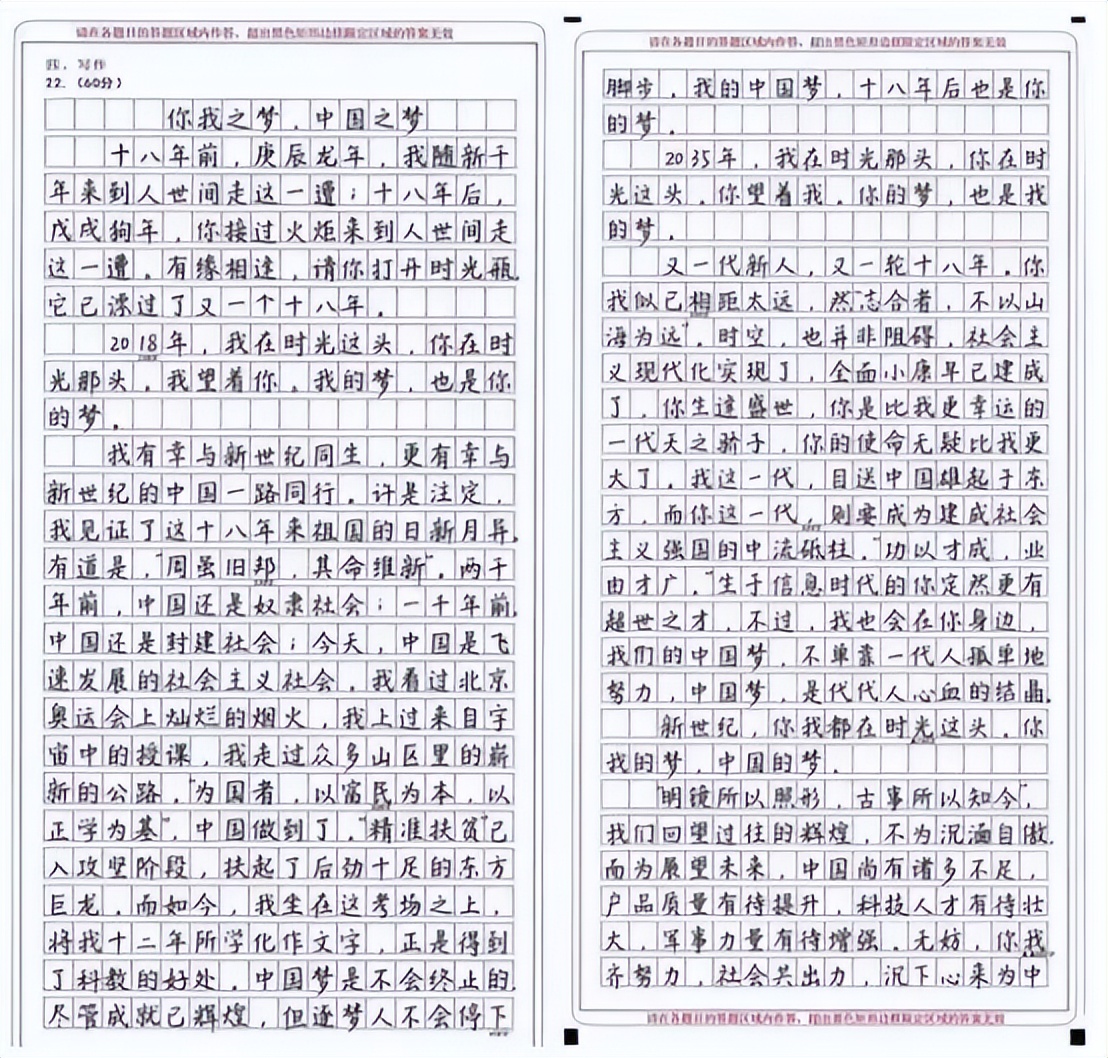 请在各题目的答题区域内作答，超出黑色矩形边框限定区域的答案无效
四、写作
22.（60分）
你我之梦，中国之梦
十八年前，庚辰龙年，我随新千
年来到人世间走这一遭；十八年后，
戊戌狗年，你接过火炬来到人世间走
这一遭。有缘相逢，请你打开时光瓶，
它已漂过了又一个十八年。
2018年，我在时光这头，你在时
光那头。我望着你。我的梦，也是你
的梦。
我有幸与新世纪同生，更有幸与
新世纪的中国一路同行。许是注定，
我见证了这十八年来祖国的日新月异。
有道是，“周虽旧邦，其命维新”。两千
年前，中国还是奴隶社会；一千年前，
中国还是封建社会；今天，中国是飞
速发展的社会主义社会。我看过北京
奥运会上灿烂的烟火，我上过来自宇
宙中的授课，我走过众多山区里的崭
新的公路。“为国者，以富民为本，以
正学为基”，中国做到了。“精准扶贫”已
入攻坚阶段，扶起了后劲十足的东方
巨龙。而如今，我坐在这考场之上，
将我十二年所学化作文字，正是得到
了科教的好处。中国梦是不会终止的。
尽管成就已辉煌，但逐梦人不会停下
请在各题目的答题区域内作答，超出黑色矩形边框限定区域的答案无效
脚步，我的中国梦，十八年后也是你
的梦。
2035年，我在时光那头，你在时
光这头。你望着我。你的梦，也是我
的梦。
又一代新人，又一轮十八年。你
我似已相距太远，然“志合者，不以山
海为远”。时空，也并非阻碍，社会主
义现代化实现了，全面小康早已建成
了。你生逢盛世，你是比我更幸运的
一代天之骄子，你的使命无疑比我更
大了。我这一代，目送中国雄起于东
方，而你这一代，则要成为建成社会
主义强国的中流砥柱。“功以才成，业
由才广。”生于信息时代的你定然更有
超世之才，不过，我也会在你身边，
我们的中国梦，不单靠一代人孤单地
努力，中国梦，是代代人心血的结晶。
新世纪，你我都在时光这头。你
我的梦，中国的梦。
“明镜所以照形，古事所以知今”，
我们回望过往的辉煌，不为沉湎自傲，
而为展望未来，中国尚有诸多不足，
产品质量有待提升，科技人才有待壮
大，军事力量有待增强。无妨，你我
齐努力，社会共出力，沉下心来为中
请在各题目的答题区域内作答，超出黑色矩形边框限定区域的答案无效